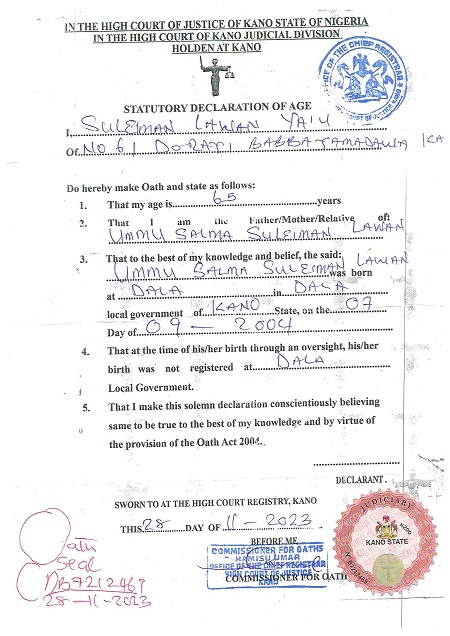 IN THE HIGH COURT OF JUSTICE OF KANO STATE OF NIGERIA
IN THE HIGH COURT OF KANO JUDICIAL DIVISION
HOLDEN AT KANO
OFFICE OF THE CHIEF REGISTRAR
HIGH COURT OF JUSTICE KANO
STATUTORY DECLARATION OF AGE
I, SULEIMAN LAWAN YAIU
Of NO 61 DORAYI BABBA
Do hereby make Oath and state as follows:
1. That my age is 65 years
2. That I am the Father/Mother/Relative of:
UMMU SALMA SULEIMAN LAWAN
3. That to the best of my knowledge and belief, the said:
UMMU SALMA SULEIMAN LAWAN was born
at DALA in DALA
local government of KANO State, on the 07
Day of 09 - 2004
4. That at the time of his/her birth through an oversight, his/her
birth was not registered at DALA
Local Government.
5. That I make this solemn declaration conscientiously believing
same to be true to the best of my knowledge and by virtue of
the provision of the Oath Act 2004.
DECLARANT.
SWORN TO AT THE HIGH COURT REGISTRY, KANO
THIS 28 DAY OF 11-2023
BEFORE ME
COMMISSIONER FOR OATHS
HAMISU UMAR
OFFICE OF THE CHIEF REGISTRAR
HIGH COURT OF JUSTICE
KANO
COMMISSIONER FOR OATH
Oath
Seal
28-11-2023
JUDICIARY
KANO STATE